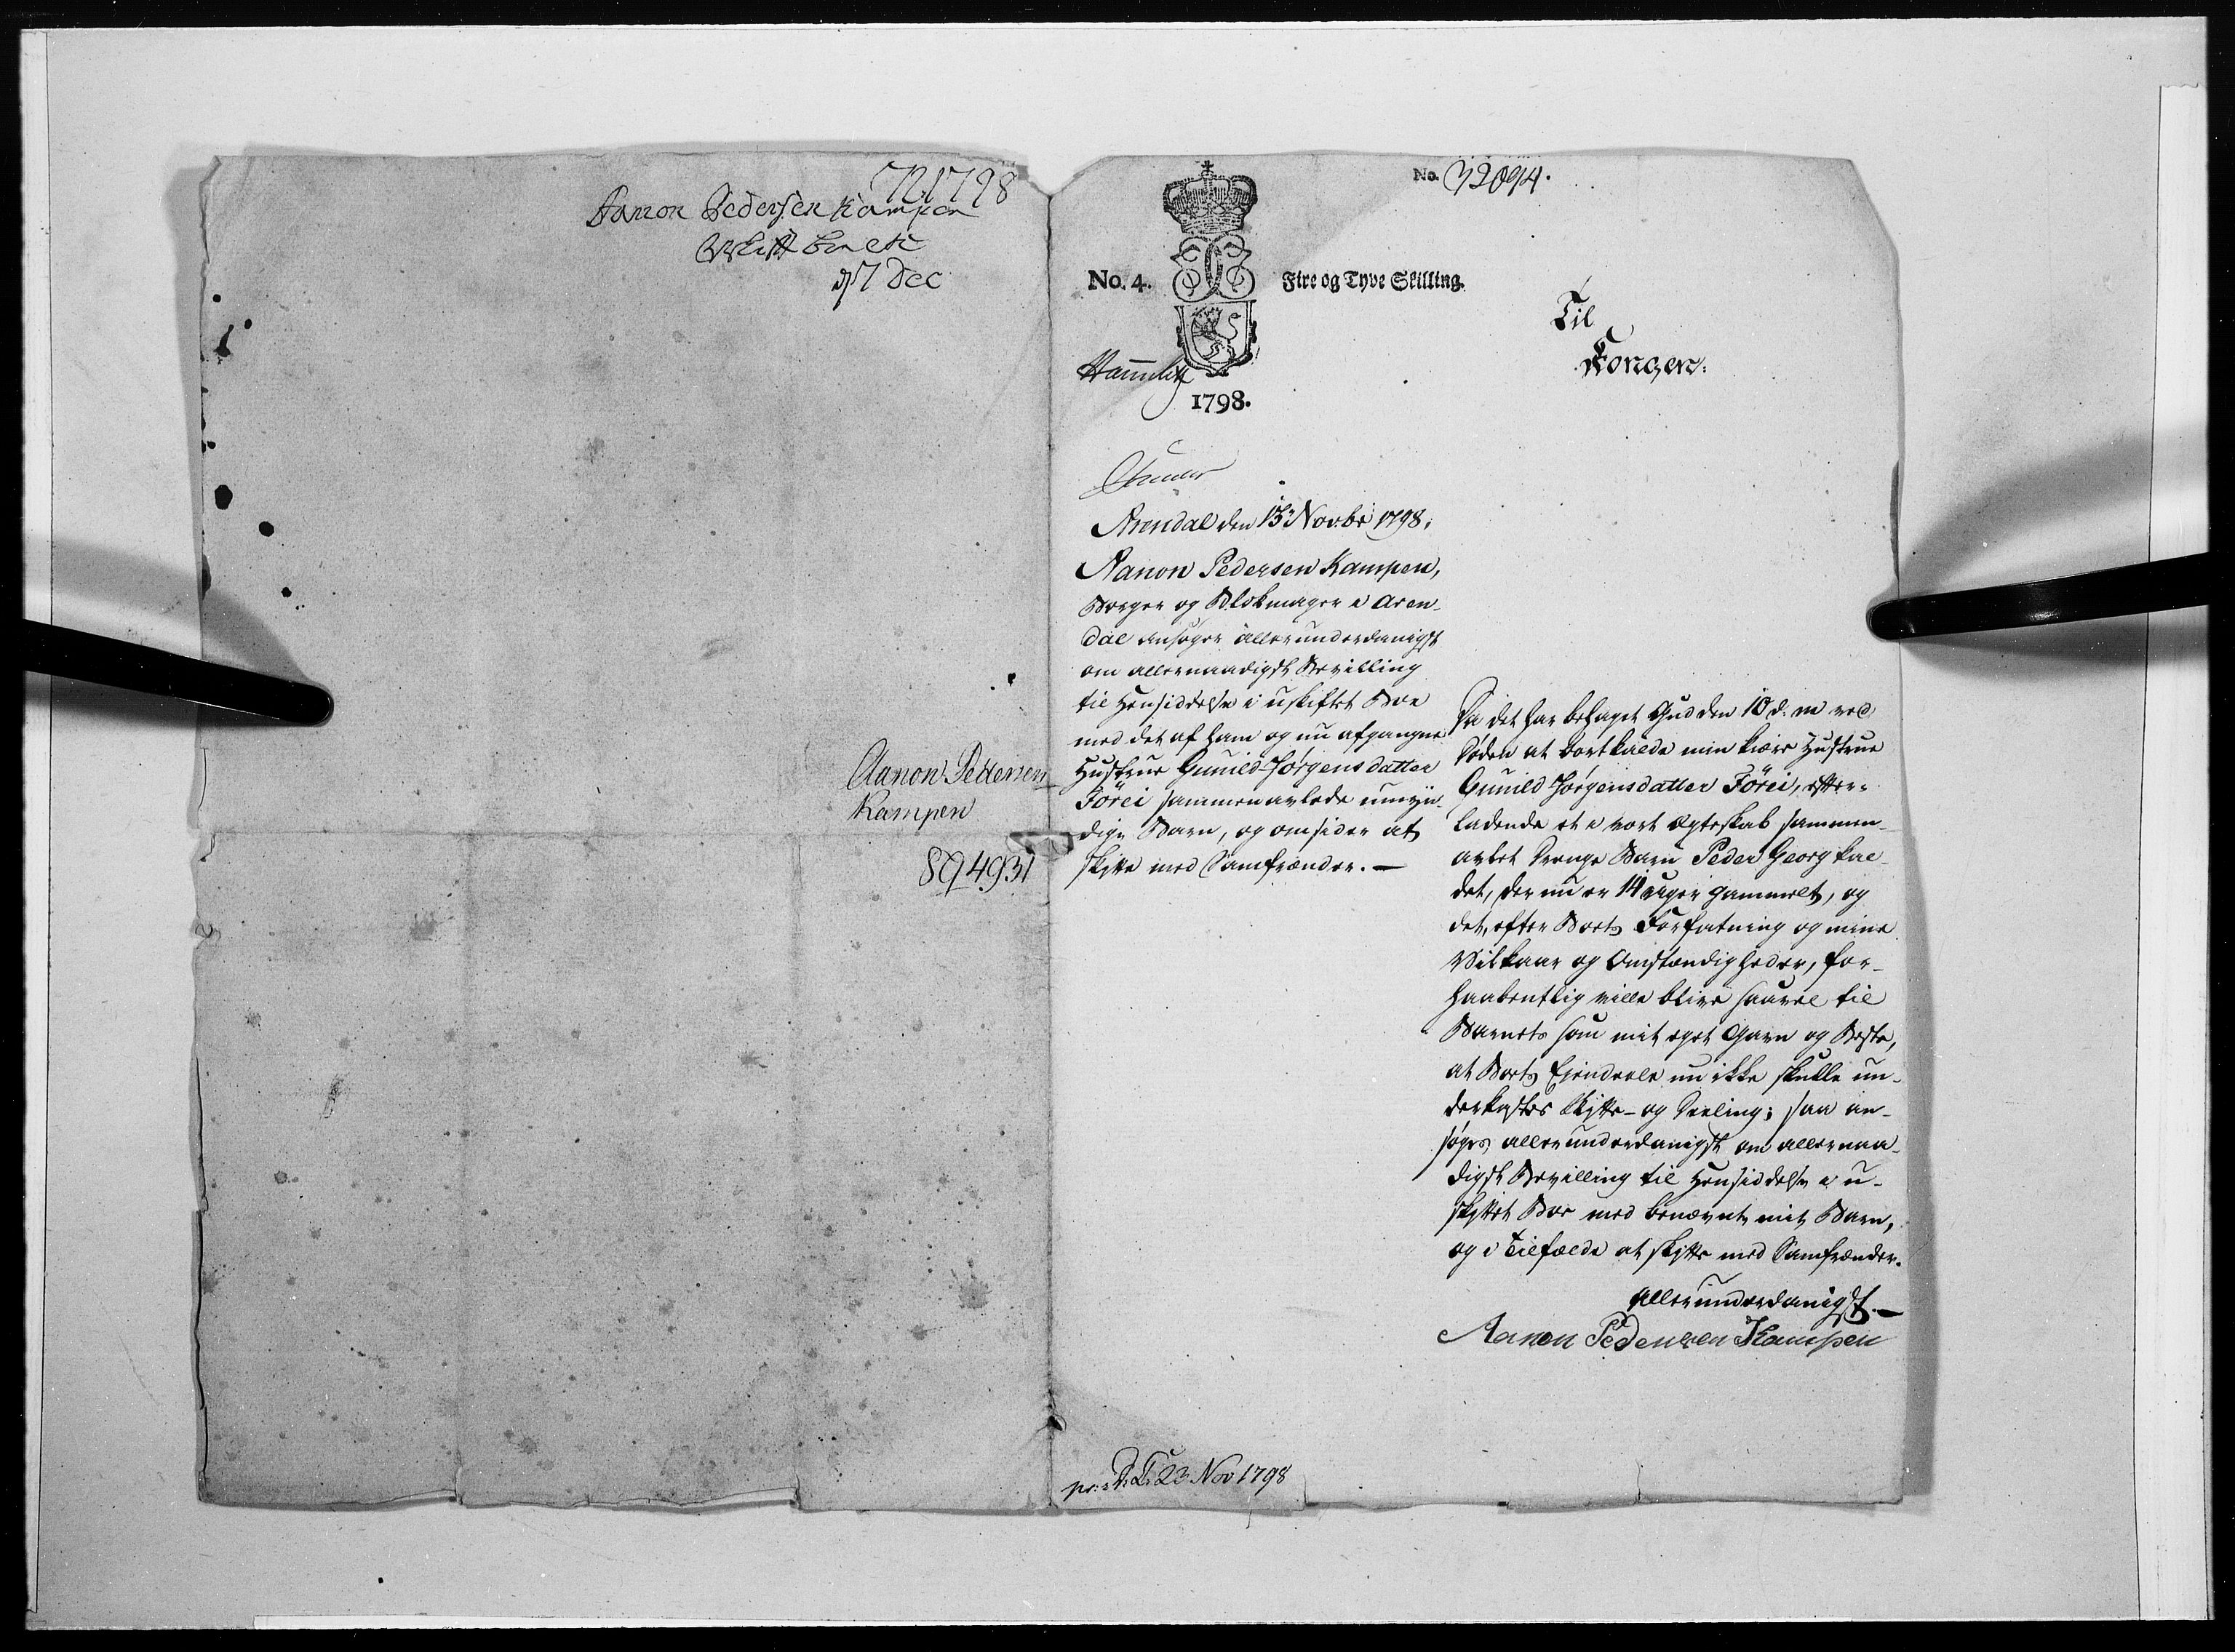 721798
Aanon Pedersen Kampen
d 7 Dec
Aanon Pedersen
Kampen
894931
No. 32094.
No. 4. Fire og Tyve Skilling.
1798.
Til
Kongen.
Arendal den 13 Novbr 1798.
Aanon Pedersen Kampen,
Borger og Blokmager i Aren-
dal ansøger allerunderdanigst
om allernaadigst Bevilling
til Hensiddelse i uskiftet Boe
med det af ham og nu afgangne
Hustrue Gunild Jørgensdatter
Förei sammenavlede umyn-
dige Barn, og omsider at
skifte med Samfrænder. —
pr: D: C: 23 Nov 1798
Da det har behaget Gud den 10 d. m ved
Døden at bortkalde min kiære Hustrue
Gunild Jørgensdatter Förei, efter-
ladende et i vort Ægteskab sammen-
avlet Drenge Barn Peder Georg kal-
det, der nu er 14 Uger gammelt, og
det, efter Boets Forfatning og mine
Vilkaar og Omstændigheder, for-
haabentlig ville blive saavel til
Barnets som mit eget Gavn og Beste,
at Boets Ejendeele nu ikke skulle un-
derkastes Skifte- og Deeling; saa an-
søges allerunderdanigst om allernaa-
digst Bevilling til Hensiddelse i u-
skiftet Boe med benævnte mit Barn,
og i Tilfælde at skifte med Samfrænder.
Allerunderdanigst. —
Aanon Pedersen Kampen